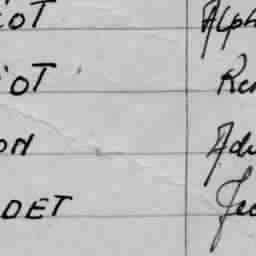 IOT Alph
IOT Ren
ON Adr
DET Jea